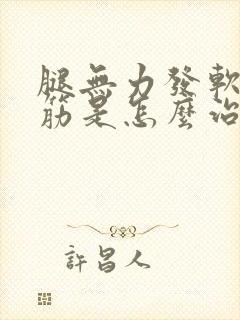 腿無力發軟
筋是怎麼治
許昌人